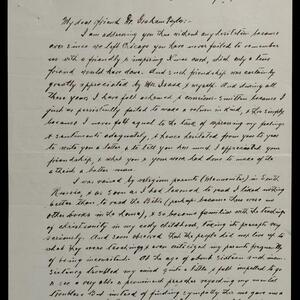 My dear friend Dr. Graham Taylor:-
I am addressing you thus without any hesitation because
ever since we left Chicago you have never failed to remember
us with a friendly & inspiring Xmas card, such only a true
friend would have done. And such friendship was certainly
greatly appreciated by Mrs. Isaak & myself. And during all
these years I have felt ashamed & conscience smitten because I
just as persistently failed to make a return in kind, & this simply
because I never felt equal to the task of expressing my feelings
& sentiments adequately, & hence hesitated from year to year
to write you a letter & to tell you how much I appreciated your
friendship, & what you & your work had done to make of me
a better man.
I was raised by religious parents (Mennonites) in South
Russia, & as soon as I had learned to read I liked nothing
better than to read the Bible (perhaps because there were no
other books in the house), & so became familiar with the teachings
of Christianity in my early childhood, taking its precepts very
seriously. And soon observed that the people did not live up to
what they were teaching & even criticized my parents frequently
of being inconsistent. At the age of about sixteen and seven-
teen troubled my mind quite a little, & I felt impelled to go
& see a very able & prominent preacher regarding my mental
troubles. But instead of finding sympathy the man gave me